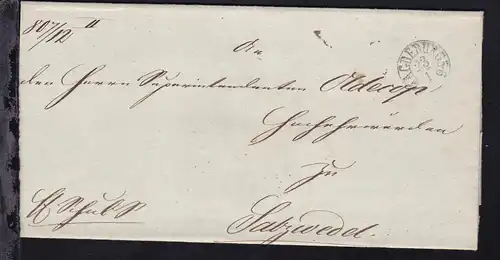 807/12 II
An
MAGDEBURG
23
1
den Herrn Superintendenten Oldecop
Hochehrwürden
zu
H Schul S.
Salzwedel.